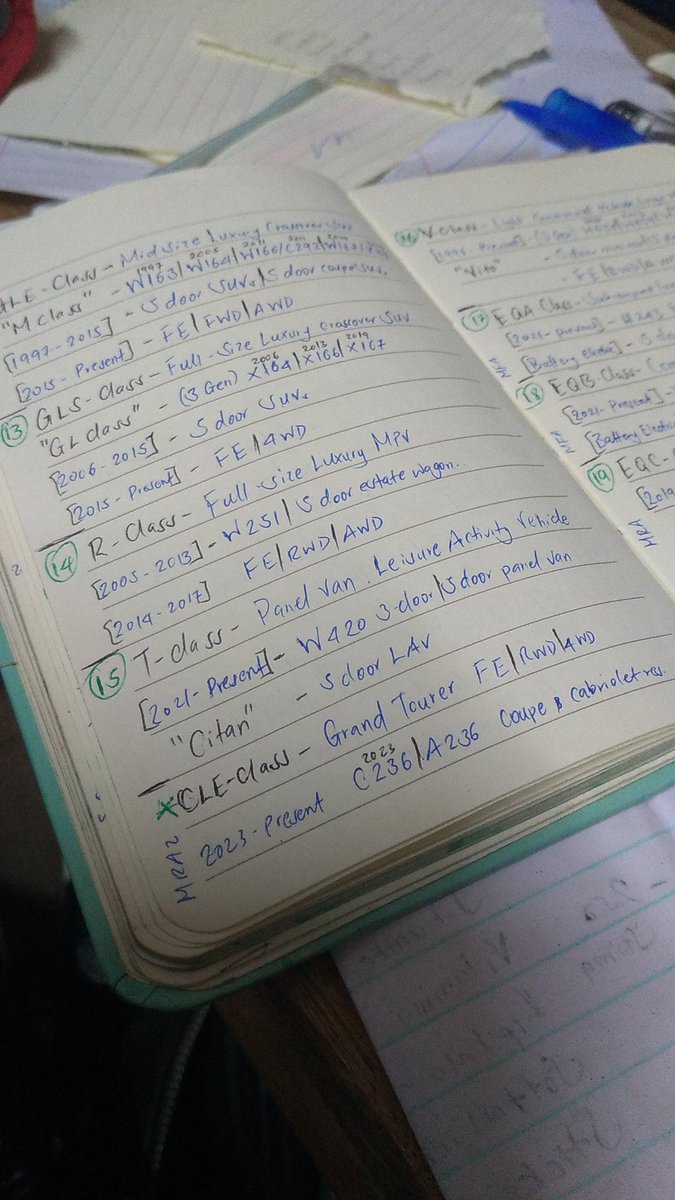 GLE-Class - Midsize Luxury Crossover SUV
1997 2005 2011 2011
"M Class" - W163/W164/W166/C292/
[1997-2015] - 5 door SUV. / 5 door coupe SUV.
[2015-Present] - FE/FWD/AWD
13 GLS-Class - Full-Size Luxury Crossover SUV
2006 2013 2019
"GL class" - (3 Gen) X164/X166/X167
[2006-2015] - 5 door SUV.
[2015-Present] - FE/4WD
14 R-Class - Full Size Luxury MPV
[2005-2013] - W251/5 door estate wagon..
[2014-2017] FE/RWD/AWD
15 T-class - Panel Van. Leisure Activity Vehicle
[2021-Present] - W420 3-door/5door panel van
"Citan" - 5 door LAV
CLE-Class - Grand Tourer FE/RWD/4WD
2023
2023-Present C236/A236 Coupe & Cabriolet res.
MRA2
16 V Class - Light
"Vito"
17 EQA Class - Subcompact
[2021-Present] -
[Battery Electric] - 5
MFA
18 EQB-Class -
[2021-Present] -
[Battery Electri
MFA
19 EQC-
[2019
MRA